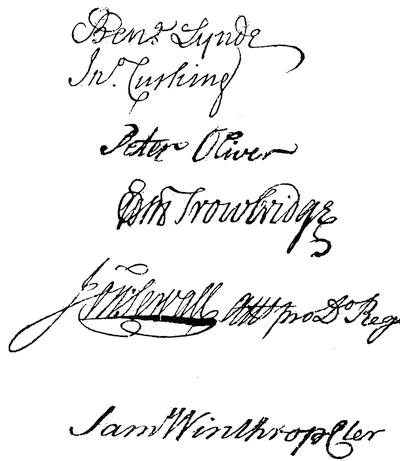 Benj.ª Lynde
Jn.º Cushing
Peter Oliver
Edm Trowbridge
Jon Sewall Att pro Dº Reg
Sam Winthrop Cler